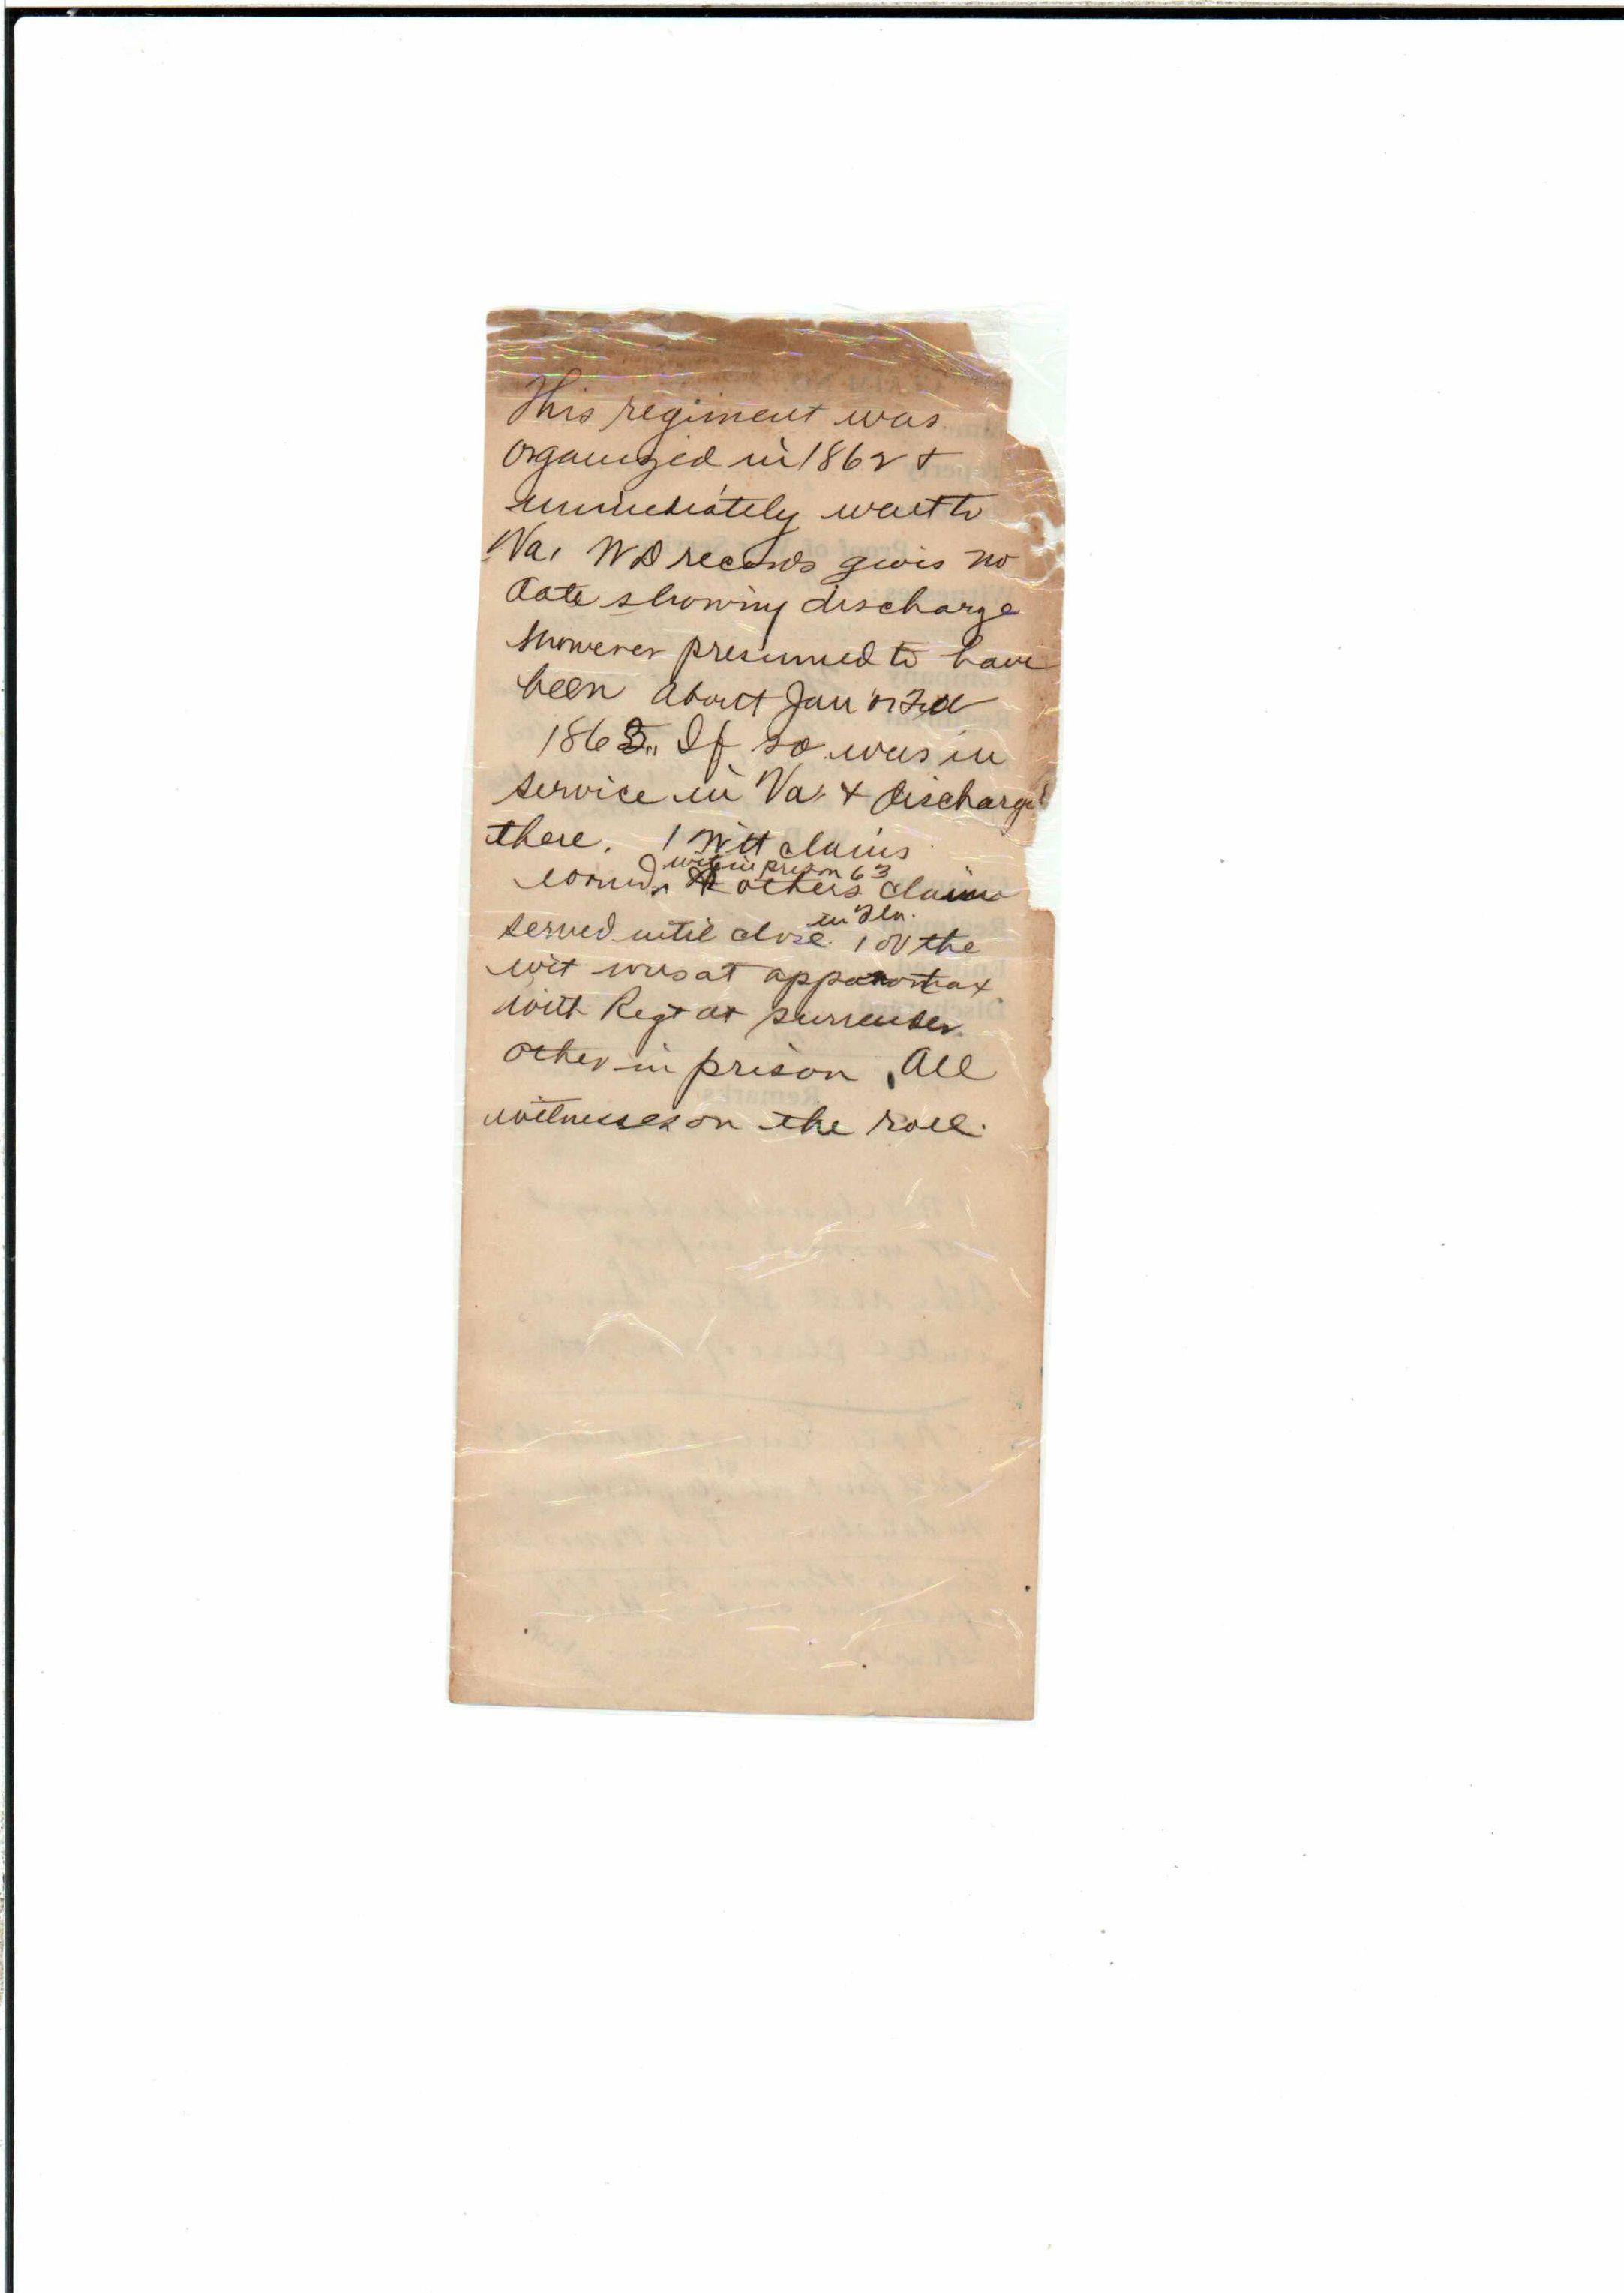 This regiment was
organized in 1862 &
immediately went to
Va. WD records gives no
date showing discharge
however presumed to have
been about Jan or Feb
1863. If so was in
service in Va. & discharged
there. 1 Witt claims
wit in prison 63
wound. others claim
in Fla.
served until close. 1 of the
wit was at appomattox
with Regt at surrender
other in prison. All
witnesses on the roll.